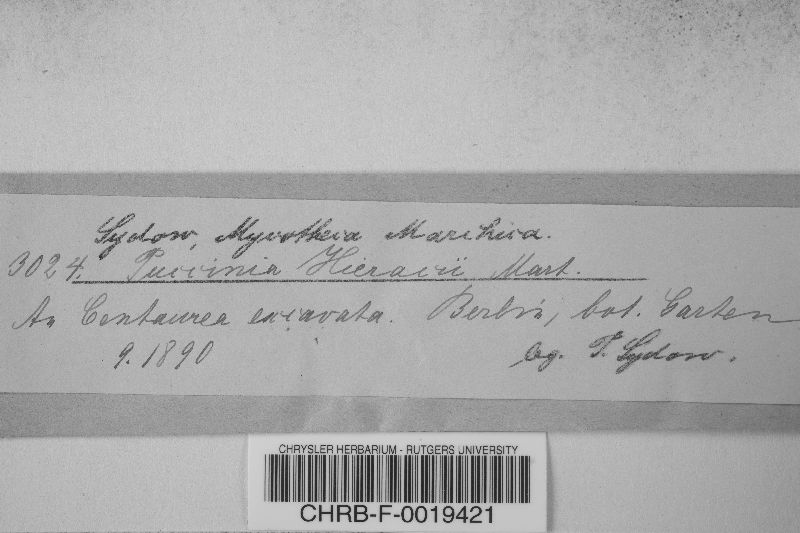 Sydow, Mycotheca Marchica.
3024. Puccinia Hieracii Mart.
An Centaurea excavata. Berlin, bot. Garten
9. 1890 leg. P. Sydow.
CHRYSLER HERBARIUM - RUTGERS UNIVERSITY
CHRB-F-0019421